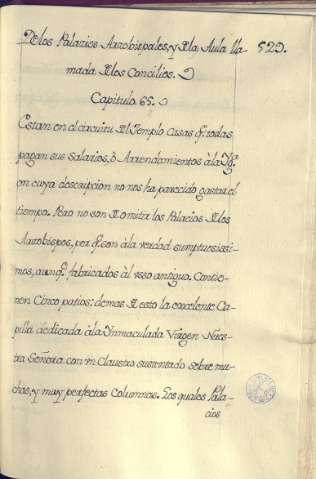 Delos Palazios Arzobispales, y Dela Aula lla-
529.
mada Delos Concilios.
Capitulo 65.
Estam en el circuitu Del Templo Casas q.e todas
pagan sus Salarios, ò Arrendamientos àla Ygl.
en cuya descripcion no nos ha parecido gastar el
tiempo. Pero no son D omitir los Palacios Delos
Arzobispos, por q.e son àla verdad sumptuosissi-
mos, aunq.e fabricados àl usso antiguo. Contie-
nen Cinco patios: demas D esto la excelente Ca-
pilla dedicada àla Inmaculada Virgen Nues-
tra Señora con vn Claustro sustentado sobre mu-
chas, y muy perfectas columnas. Los quales Pala-
cios